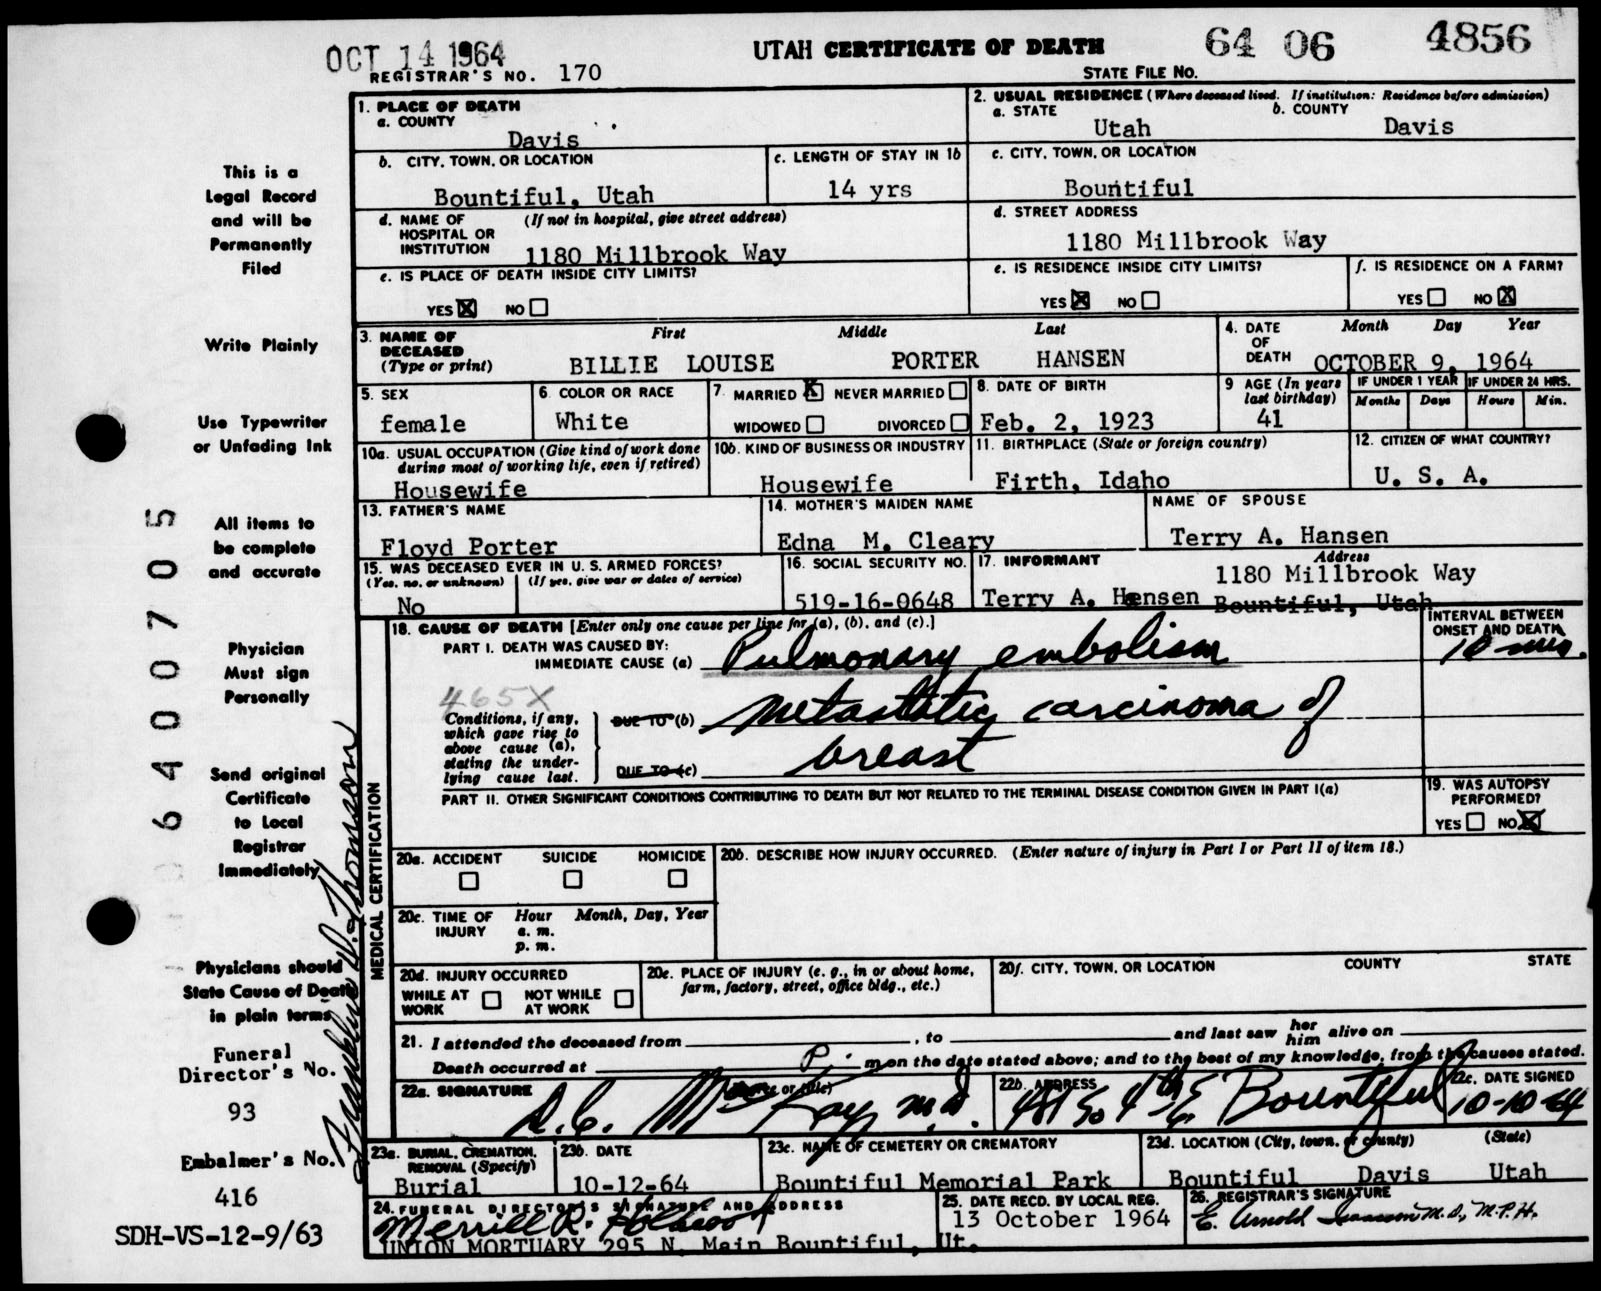 OCT 14 1964
UTAH CERTIFICATE OF DEATH
64 06 4856
REGISTRAR'S NO. 170
STATE FILE NO.
1. PLACE OF DEATH
a. COUNTY
Davis
2. USUAL RESIDENCE (Where deceased lived. If institution: Residence before admission)
a. STATE b. COUNTY
Utah Davis
b. CITY, TOWN, OR LOCATION
Bountiful, Utah
c. LENGTH OF STAY IN 1b
14 yrs
c. CITY, TOWN, OR LOCATION
Bountiful
d. NAME OF HOSPITAL OR INSTITUTION (If not in hospital, give street address)
1180 Millbrook Way
d. STREET ADDRESS
1180 Millbrook Way
e. IS PLACE OF DEATH INSIDE CITY LIMITS?
YES X NO
e. IS RESIDENCE INSIDE CITY LIMITS?
YES X NO
f. IS RESIDENCE ON A FARM?
YES NO X
3. NAME OF DECEASED (Type or print)
First Middle Last
BILLIE LOUISE PORTER HANSEN
4. DATE OF DEATH Month Day Year
OCTOBER 9, 1964
5. SEX
female
6. COLOR OR RACE
White
7. MARRIED X NEVER MARRIED
WIDOWED DIVORCED
8. DATE OF BIRTH
Feb. 2, 1923
9 AGE (In years last birthday)
41
IF UNDER 1 YEAR
Months Days
IF UNDER 24 HRS.
Hours Min.
10a. USUAL OCCUPATION (Give kind of work done during most of working life, even if retired)
Housewife
10b. KIND OF BUSINESS OR INDUSTRY
Housewife
11. BIRTHPLACE (State or foreign country)
Firth, Idaho
12. CITIZEN OF WHAT COUNTRY?
U. S. A.
13. FATHER'S NAME
Floyd Porter
14. MOTHER'S MAIDEN NAME
Edna M. Cleary
NAME OF SPOUSE
Terry A. Hansen
15. WAS DECEASED EVER IN U. S. ARMED FORCES?
(Yes, no, or unknown) (If yes, give war or dates of service)
No
16. SOCIAL SECURITY NO.
519-16-0648
17. INFORMANT Address
1180 Millbrook Way
Terry A. Hansen Bountiful, Utah
18. CAUSE OF DEATH [Enter only one cause per line for (a), (b), and (c).]
INTERVAL BETWEEN ONSET AND DEATH
PART I. DEATH WAS CAUSED BY:
IMMEDIATE CAUSE (a) Pulmonary embolism 10 min.
465X
Conditions, if any, which gave rise to above cause (a), stating the underlying cause last.
DUE TO (b) metastatic carcinoma of
DUE TO (c) breast
PART II. OTHER SIGNIFICANT CONDITIONS CONTRIBUTING TO DEATH BUT NOT RELATED TO THE TERMINAL DISEASE CONDITION GIVEN IN PART I(a)
19. WAS AUTOPSY PERFORMED?
YES NO X
MEDICAL CERTIFICATION
20a. ACCIDENT SUICIDE HOMICIDE
20b. DESCRIBE HOW INJURY OCCURRED. (Enter nature of injury in Part I or Part II of item 18.)
20c. TIME OF INJURY Hour Month, Day, Year
a. m.
p. m.
20d. INJURY OCCURRED
WHILE AT WORK NOT WHILE AT WORK
20e. PLACE OF INJURY (e. g., in or about home, farm, factory, street, office bldg., etc.)
20f. CITY, TOWN, OR LOCATION COUNTY STATE
21. I attended the deceased from , to and last saw her him alive on
Death occurred at P. m on the date stated above; and to the best of my knowledge, from the causes stated.
22a. SIGNATURE (Degree or title)
D. C. McKay M.D.
22b. ADDRESS
481 So 4th E Bountiful
22c. DATE SIGNED
10-10-64
23a. BURIAL, CREMATION, REMOVAL (Specify)
Burial
23b. DATE
10-12-64
23c. NAME OF CEMETERY OR CREMATORY
Bountiful Memorial Park
23d. LOCATION (City, town, or county) (State)
Bountiful Davis Utah
24. FUNERAL DIRECTOR'S SIGNATURE AND ADDRESS
Merrill R. Holbrook
UNION MORTUARY 295 N. Main Bountiful, Ut.
25. DATE RECD. BY LOCAL REG.
13 October 1964
26. REGISTRAR'S SIGNATURE
E. Arnold Isaacson M.D., M.P.H.
This is a
Legal Record
and will be
Permanently
Filed
Write Plainly
Use Typewriter
or Unfading Ink
All items to
be complete
and accurate
Physician
Must sign
Personally
Send original
Certificate
to Local
Registrar
Immediately
Physicians should
State Cause of Death
in plain terms
Funeral
Director's No.
93
Embalmer's No.
416
SDH-VS-12-9/63
6400705
Franklin D. Thomson